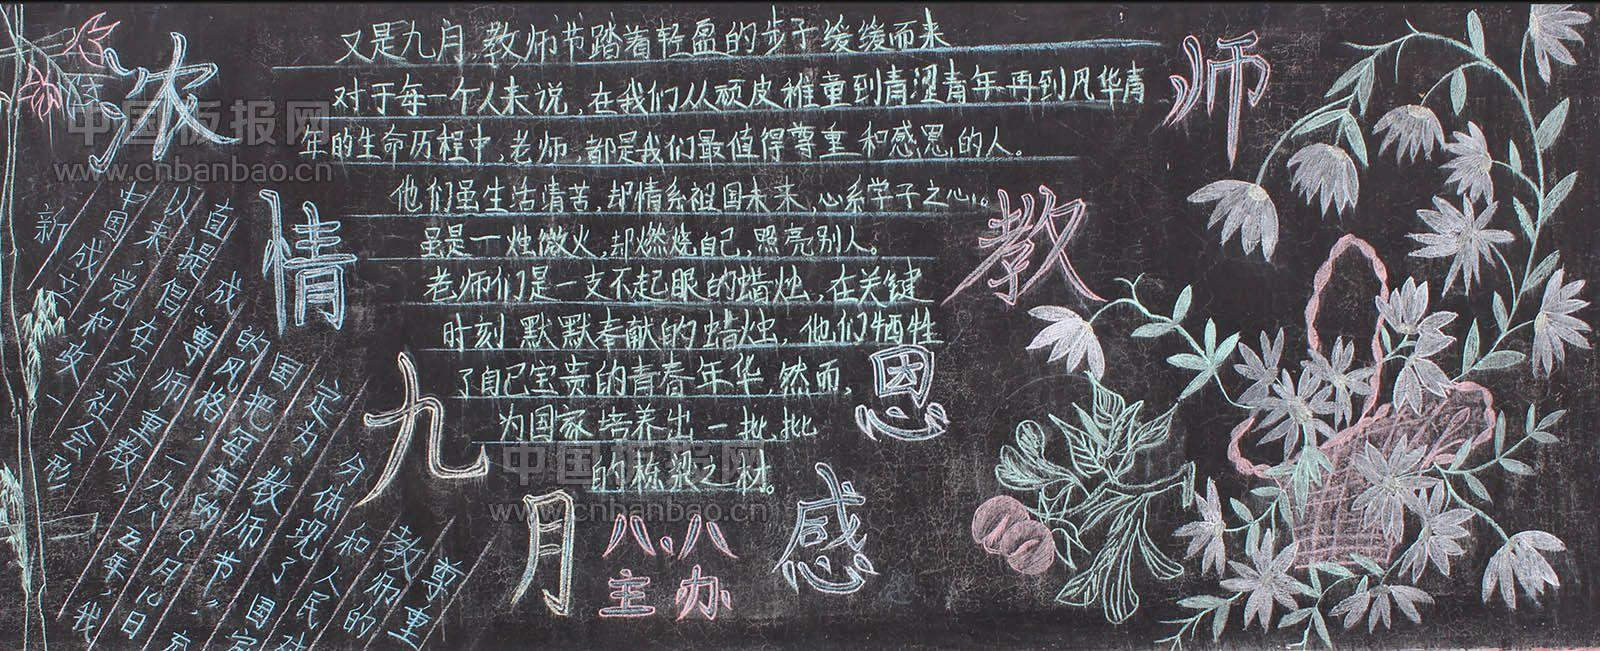 浓情九月
感恩教师
又是九月,教师节踏着轻盈的步子缓缓而来
对于每一个人来说,在我们从顽皮稚童到青涩青年再到风华青
年的生命历程中,老师,都是我们最值得尊重和感恩的人。
他们虽生活清苦,却情系祖国未来,心系学子之心。
虽是一烛微火,却燃烧自己,照亮别人。
老师们是一支不起眼的蜡烛,在关键
时刻默默奉献的蜡烛,他们牺牲
了自己宝贵的青春年华,然而,
为国家培养出一批批
的栋梁之材。
八.八
主办
新
中国成立
以来,党和央一
直提倡在全社会形
成“尊师重教”
的风格,一九八五年,我
国把每年的9月10日
定为“教师节”,充
分体现了国家
和人民对
教师的
尊重
中国板报网
www.cnbanbao.cn
中国板报网
www.cnbanbao.cn